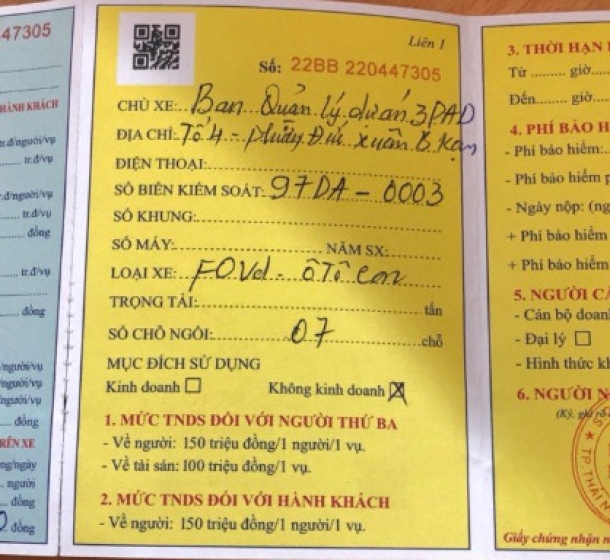 47305
HÀNH KHÁCH
tr.đ/người/vụ
tr.đ/vụ
tr.đ/người/vụ
tr.đ/vụ
đồng
tr.đ/vụ
đồng
người/vụ
người/vụ
người/vụ
TRÊN XE
ng/ngày
người
đồng
đồng
Liên 1
Số: 22BB 220447305
CHỦ XE: Ban Quản lý dự án 3PAD
ĐỊA CHỈ: Tổ 4 - Phường Đức Xuân B. Kạn
ĐIỆN THOẠI:
SỐ BIỂN KIỂM SOÁT: 97DA - 0003
SỐ KHUNG:
SỐ MÁY: NĂM SX:
LOẠI XE: FOVd - ô Tô con
TRỌNG TẢI: tấn
SỐ CHỖ NGỒI: 07 chỗ
MỤC ĐÍCH SỬ DỤNG
Kinh doanh ☐ Không kinh doanh ☒
1. MỨC TNDS ĐỐI VỚI NGƯỜI THỨ BA
- Về người: 150 triệu đồng/1 người/1 vụ.
- Về tài sản: 100 triệu đồng/1 vụ.
2. MỨC TNDS ĐỐI VỚI HÀNH KHÁCH
- Về người: 150 triệu đồng/1 người/1 vụ.
3. THỜI HẠN
Từ ........ giờ
Đến ........ giờ
4. PHÍ BẢO H
- Phí bảo hiểm:
- Phí bảo hiểm p
- Ngày nộp: (ng
+ Phí bảo hiểm
+ Phí bảo hiểm
5. NGƯỜI CẤ
- Cán bộ doan
- Đại lý ☐
- Hình thức kh
6. NGƯỜI N
(Ký, ghi rõ
TP.THÁI N
Giấy chứng nhận n